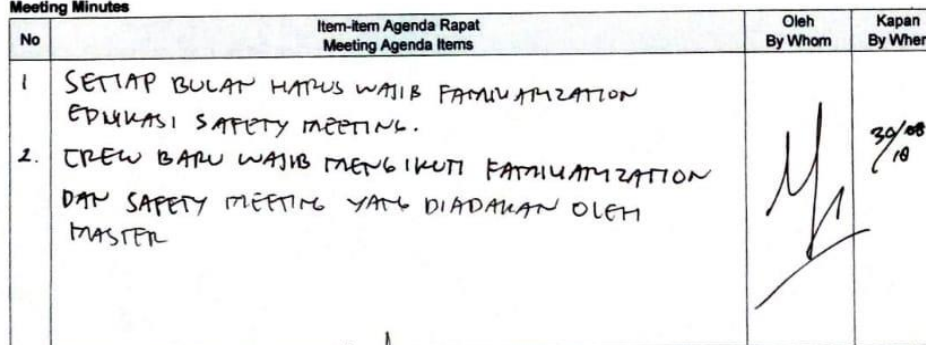 Meeting Minutes
No
Item-item Agenda Rapat
Meeting Agenda Items
Oleh
By Whom
Kapan
By When
1 SETIAP BULAN HARUS WAJIB FAMILIARIZATION
EDUKASI SAFETY MEETING.
2. CREW BARU WAJIB MENGIKUTI FAMILIARIZATION
DAN SAFETY MEETING YANG DIADAKAN OLEH
MASTER
30/08
18